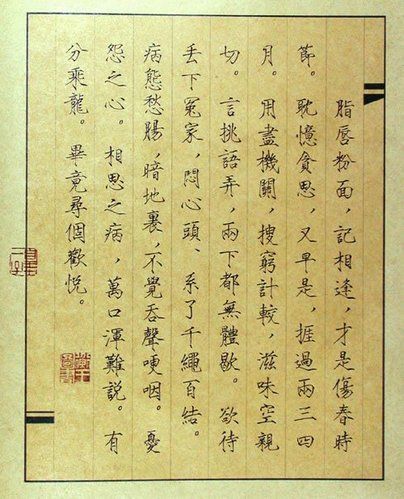 脂唇粉面，記相逢，才是傷春時
節。耽憶貪思，又早是，捱過兩三四
月。用盡機關，搜窮計較，滋味空親
切。言挑語弄，兩下都無體歇。欲待
丟下冤家，悶心頭、系了千繩百结。
病態愁腸，暗地裏，不覺吞聲哽咽。憂
怨之心。相思之病，萬口渾難説。有
分乘龍。畢竟尋個歡悦。